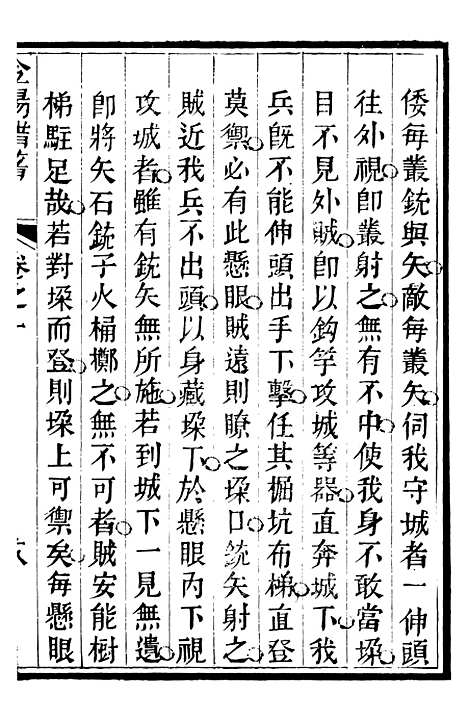 倭每叢銃與矢敵每叢矢伺我守城者一伸頭
往外視卽叢射之無有不中使我身不敢當垜
目不見外賊卽以鈎竿攻城等器直奔城下我
兵旣不能伸頭出手下擊任其掘坑布梯直登
莫禦必有此懸眼賊遠則瞭之垜口銃矢射之
賊近我兵不出頭以身藏垜下於懸眼內下視
攻城者雖有銃矢無所施若到城下一見無遺
卽將矢石銃子火桶擲之無不可者賊安能樹
梯駐足哉若對垜而登則垜上可禦矣每懸眼
金湯借箸
卷之十